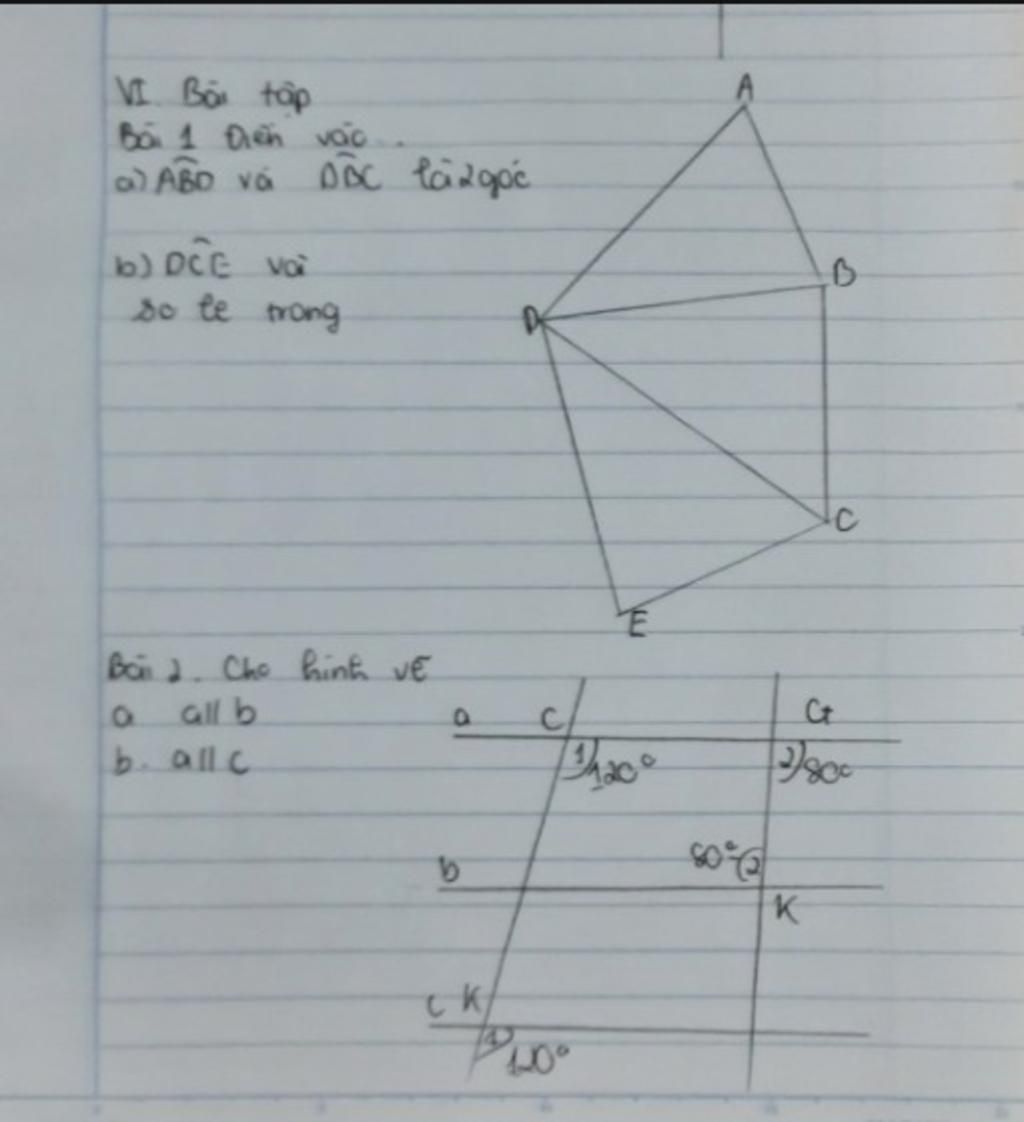 VI. Bài tập
Bài 1 Điền vào...
a) ABD và DBC là 2 góc
b) DCE và
so le trong
A
B
D
C
E
Bài 2. Cho hình vẽ
a a//b
b. a//c
a C G
1 120° 2 80°
b 80° 2
K
c K
1 120°